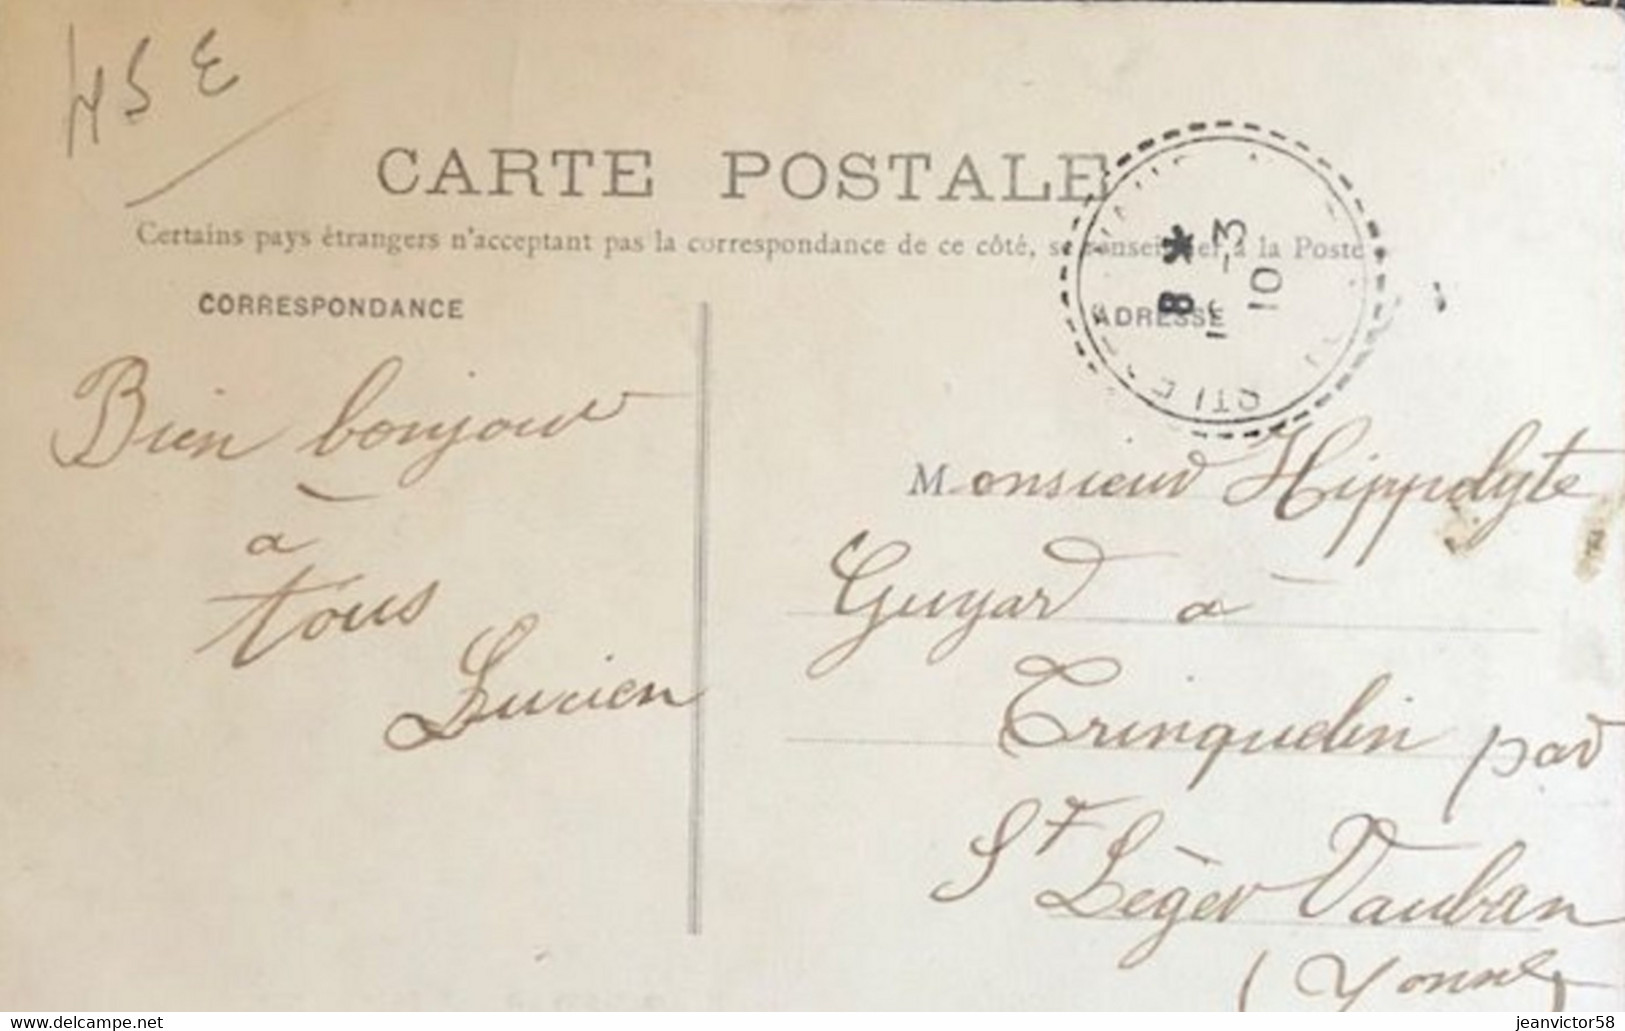 CARTE POSTALE
Certains pays étrangers n'acceptant pas la correspondance de ce côté, se renseigner à la Poste
CORRESPONDANCE
ADRESSE
8 *
15-3
10
Bien bonjour
à
tous
Lucien
Monsieur Hippolyte
Guyard à
Trinquelin par
St Léger Vauban
(Yonne)
jeanvictor58